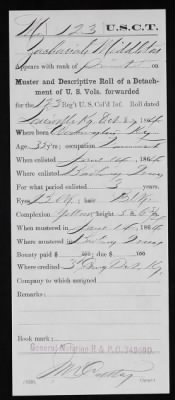 M | 123 | U.S.C.T.
Zachariah Middleton
Appears with rank of Private on
Muster and Descriptive Roll of a Detach-
ment of U. S. Vols. forwarded
for the 123 Reg't U. S. Col'd Inf. Roll dated
Louisville Ky. Oct 1864
Where born Ky
Age 33 y'rs; occupation
When enlisted June 14, 1864
Where enlisted Bowling Green
For what period enlisted 3 years.
Eyes Blk; hair Blk
Complexion Yellow; height 5 ft. 6 in.
When mustered in June 14, 1864
Where mustered in Bowling Green
Bounty paid $ 100; due $ 100
Where credited 3 Cong Dist Ky.
Company to which assigned
Remarks:
Book mark:
General Notation R & P.O.
(339)
Copyist.